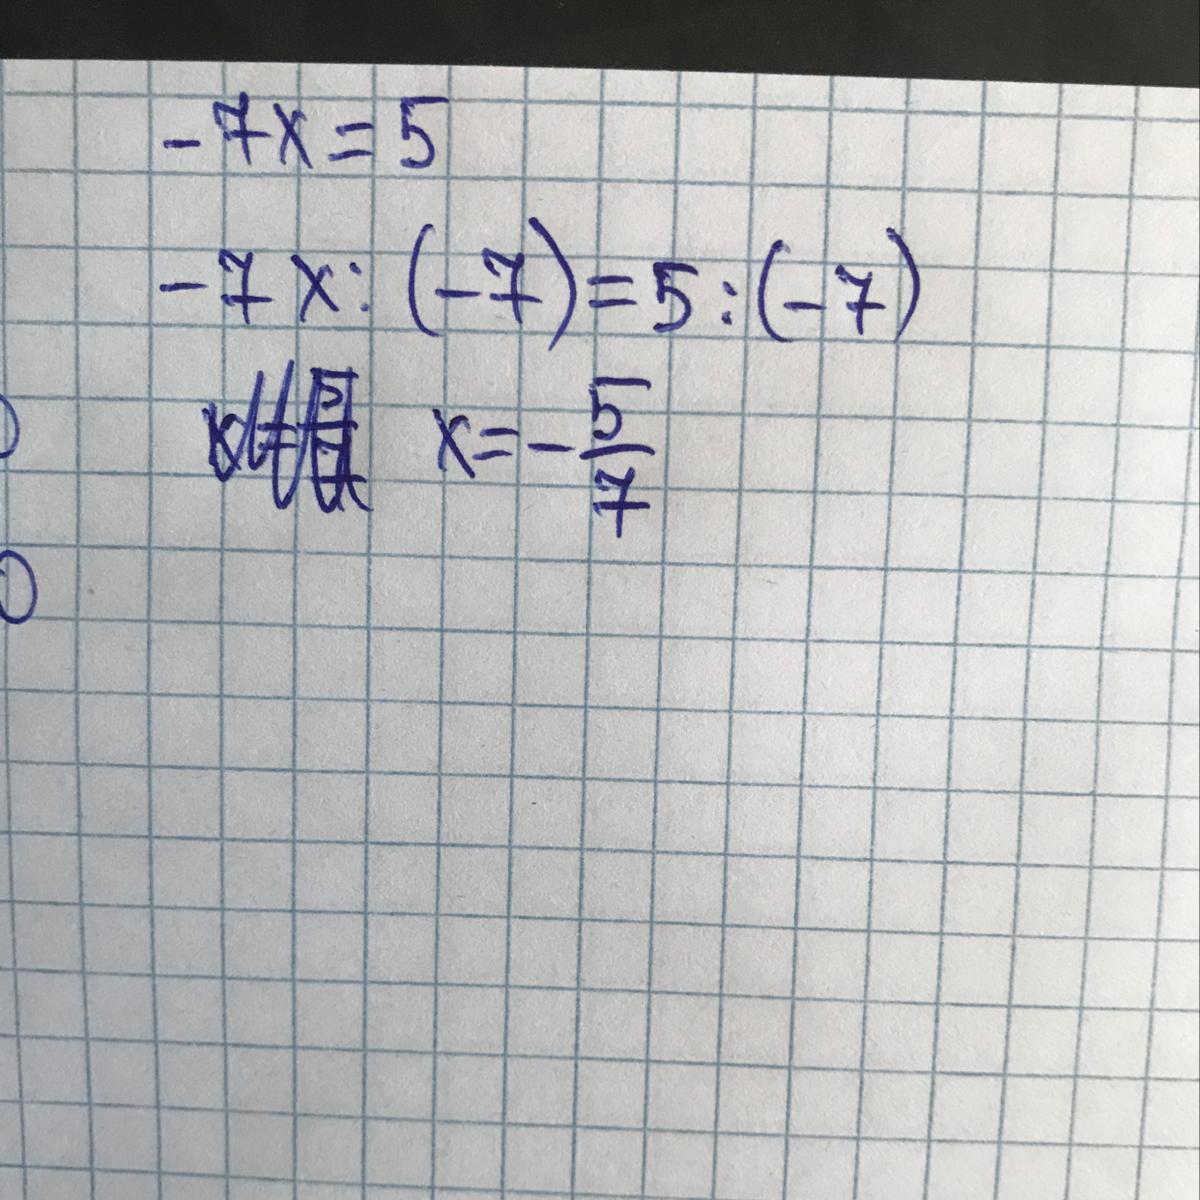 -7x=5
-7x:(-7)=5:(-7)
x=-5/7